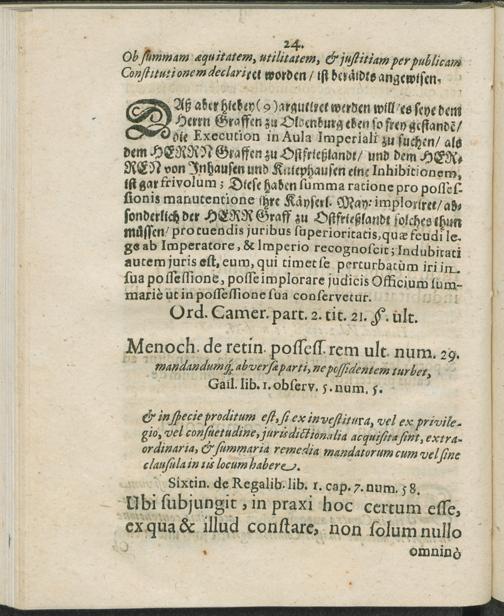 24.
Ob summam æquitatem, utilitatem, & justitiam per publicam
Constitutionem declariret worden / ist beräidts angewisen.
Daß aber hiebey (9) arguiret werden will / es seye dem
Herrn Graffen zu Oldenburg eben so frey gestandē /
die Execution in Aula Imperiali zu suchen / als
dem HERRN Graffen zu Ostfrießlandt / und dem HER-
REN von Inhausen und Kniephausen eine Inhibitionem,
ist gar frivolum; Diese haben summa ratione pro posses-
sionis manutentione ihre Käyserl. May: imploriret / ab-
sonderlich der HERR Graff zu Ostfrießlandt solches thun
müssen / pro tuendis juribus superioritatis, quæ feudi le-
ge ab Imperatore, & Imperio recognoscit; Indubitati
autem juris est, eum, qui timet se perturbatum iri in
sua possessione, posse implorare judicis Officium sum-
mariè ut in possessione sua conservetur.
Ord. Camer. part. 2. tit. 21. §. ult.
Menoch. de retin. possess. rem ult. num. 29.
mandandumq́; ab versæ parti, ne possidentem turbet,
Gail. lib. 1. observ. 5. num. 5.
& in specie proditum est, si ex investitura, vel ex privile-
gio, vel consuetudine, jurisdictionalia acquisita sint, extra-
ordinaria, & summaria remedia mandatorum cum vel sine
clausula in iis locum habere.
Sixtin. de Regalib. lib. 1. cap. 7. num. 58.
Ubi subjungit, in praxi hoc certum esse,
ex qua & illud constare, non solum nullo
omninò